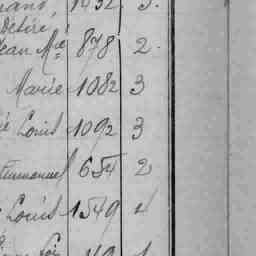 1432 3.
Désiré
Jean Mie 878 2.
Marie 1082 3
Louis 1092 3
Emmanuel 654 2
Louis 1549 4